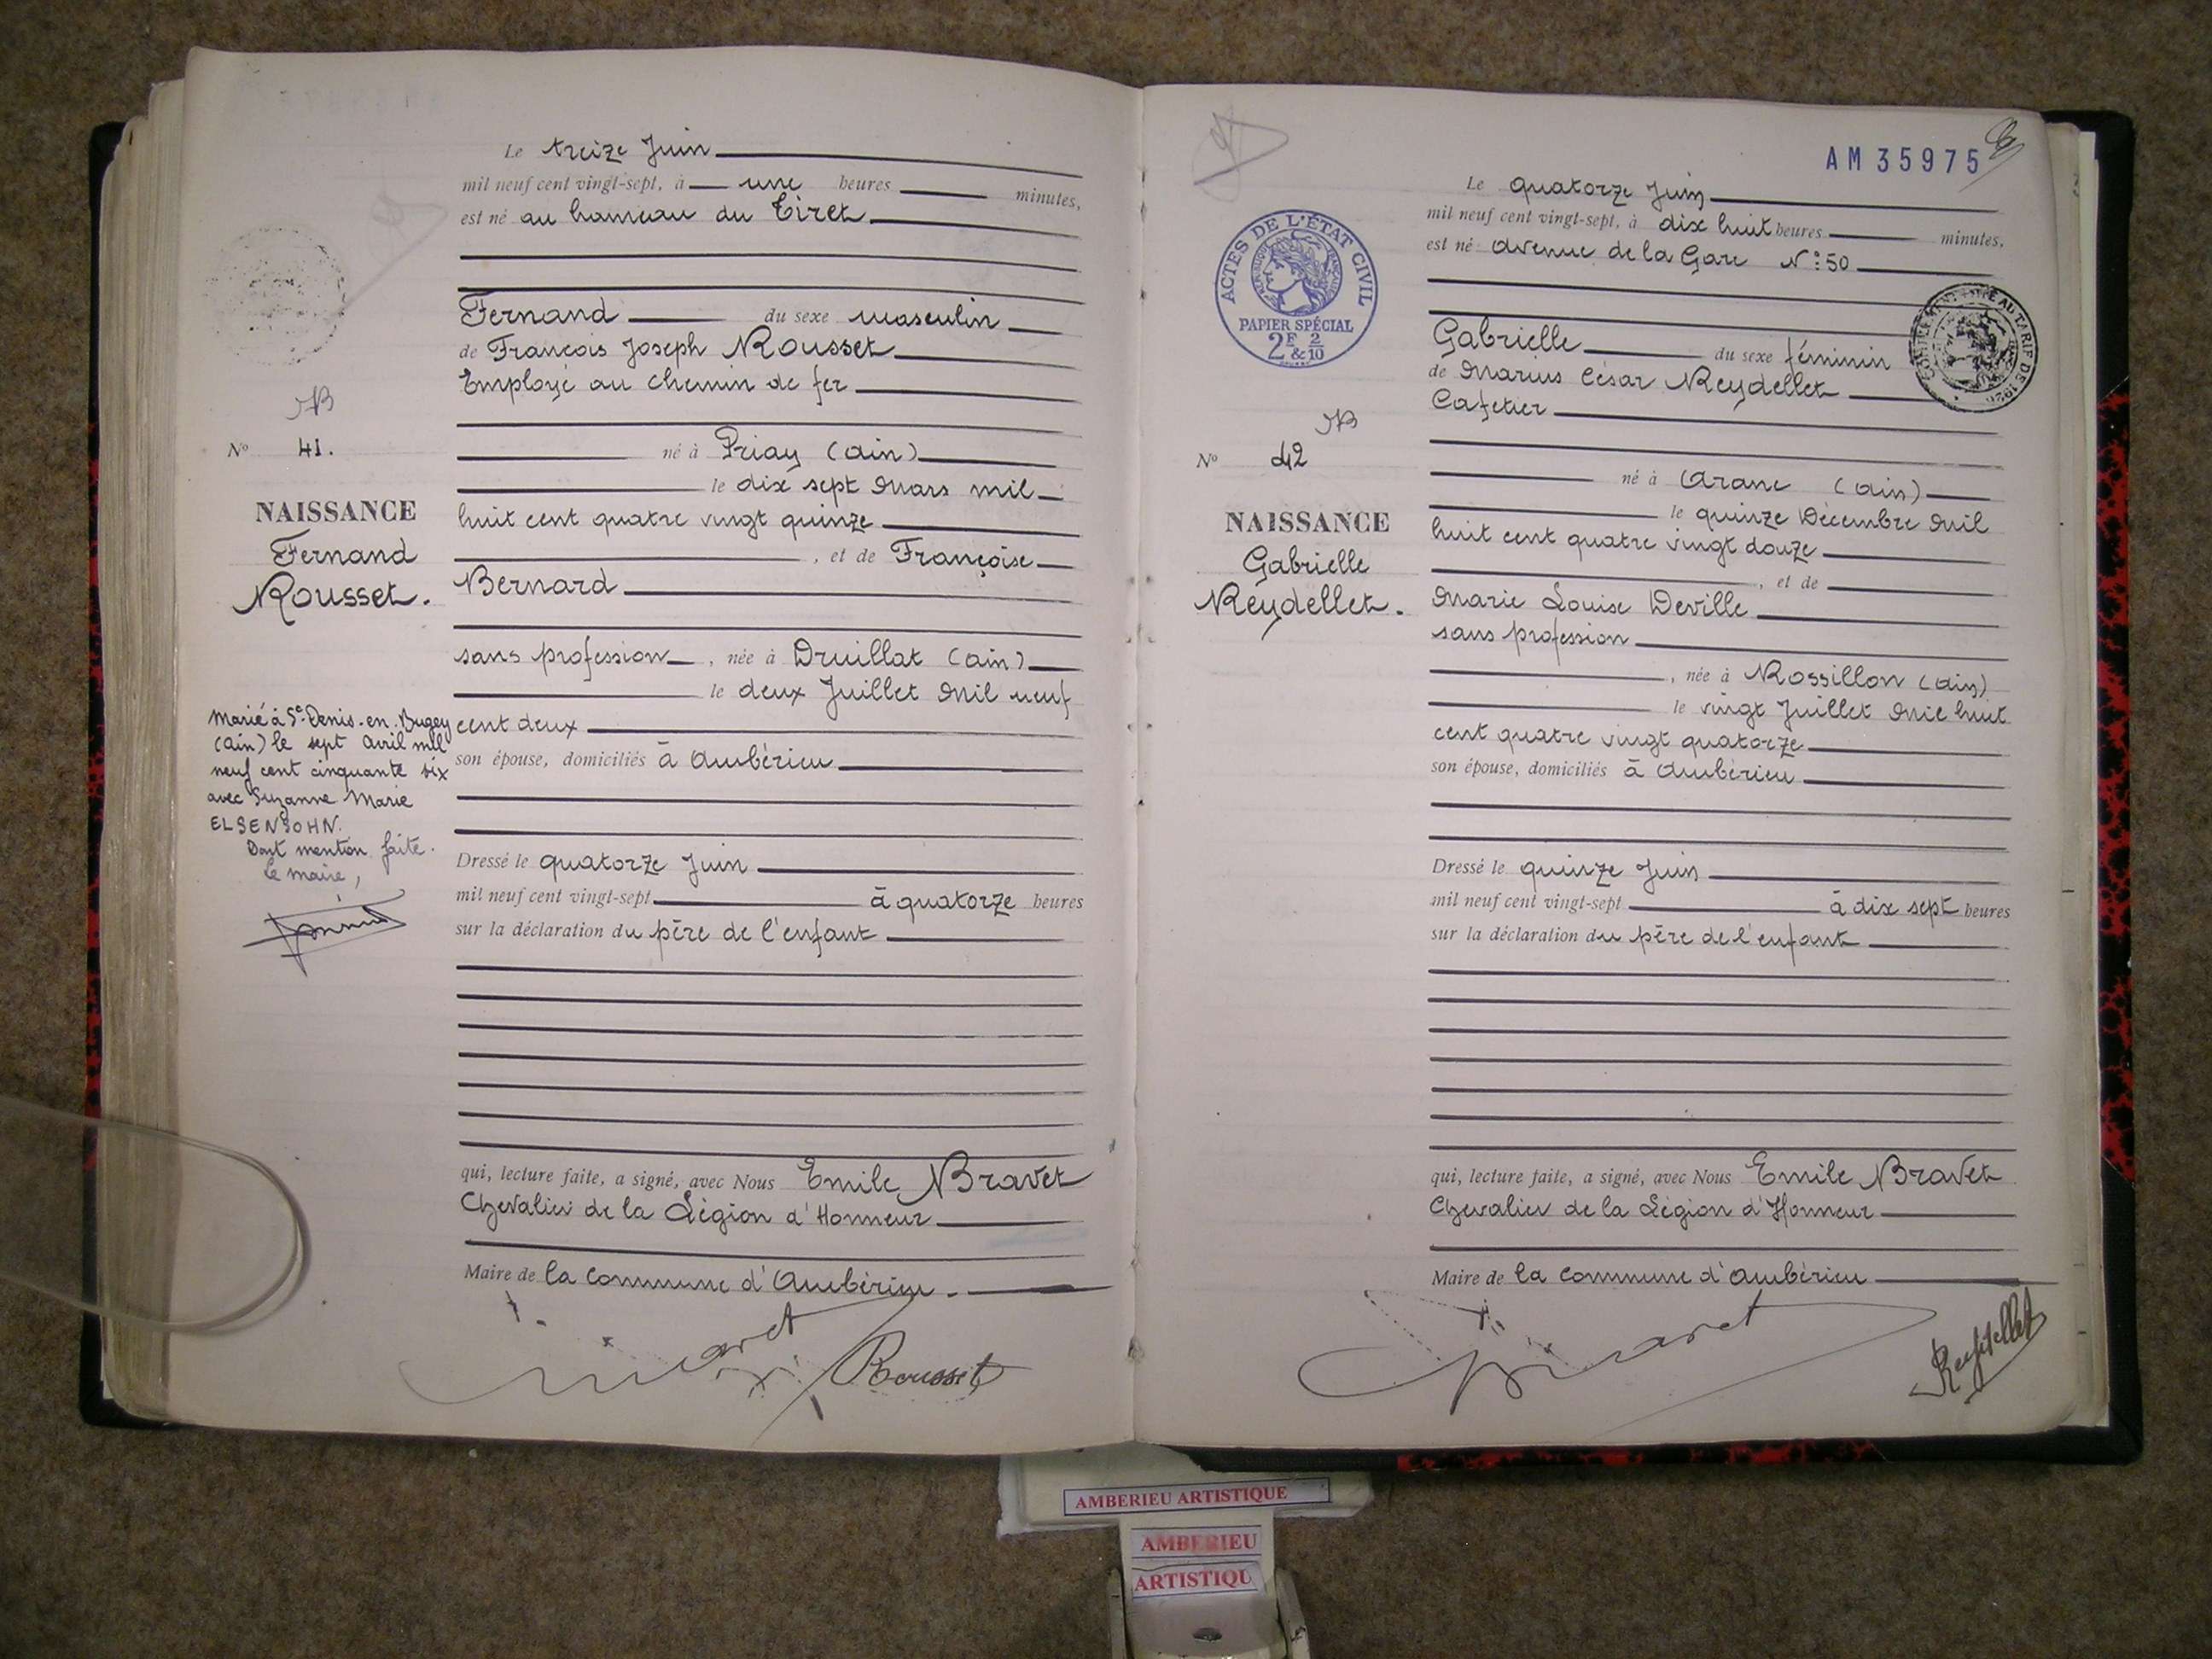 Le treize Juin
mil neuf cent vingt-sept, à une heures minutes,
est né au hameau du Tiret
Fernand du sexe masculin
de François Joseph Rousset
Employé au chemin de fer
NB
No 41.
né à Priay (Ain)
le dix sept Mars mil
huit cent quatre vingt quinze
NAISSANCE
Fernand
Rousset.
, et de Françoise
Bernard
sans profession, née à Druillat (Ain)
le deux Juillet Mil neuf
cent deux
son épouse, domiciliés à Ambérieu
Marié à St-Denis-en-Bugey
(Ain) le sept Avril mil
neuf cent cinquante six
avec Suzanne Marie
ELSENSOHN.
Dont mention faite.
Le maire,
Dressé le quatorze Juin
mil neuf cent vingt-sept à quatorze heures
sur la déclaration du père de l'enfant
qui, lecture faite, a signé, avec Nous Emile Bravet
Chevalier de la Légion d'Honneur
Maire de la commune d'Ambérieu.
Bravet
Rousset
AM 35975
ACTES DE L'ÉTAT CIVIL
RÉPUBLIQUE FRANÇAISE
PAPIER SPÉCIAL
2F 2
& 10
Le quatorze Juin
mil neuf cent vingt-sept, à dix huit heures minutes,
est né Avenue de la Gare No: 50
AU TARIF DE 1926
Gabrielle du sexe féminin
de Marius César Reydellet
Cafetier
NB
No 42
né à Aranc (Ain)
le quinze Décembre Mil
huit cent quatre vingt douze
NAISSANCE
Gabrielle
Reydellet.
, et de
Marie Louise Deville
sans profession
, née à Rossillon (Ain)
le vingt Juillet Mil huit
cent quatre vingt quatorze
son épouse, domiciliés à Ambérieu
Dressé le quinze Juin
mil neuf cent vingt-sept à dix sept heures
sur la déclaration du père de l'enfant
qui, lecture faite, a signé, avec Nous Emile Bravet
Chevalier de la Légion d'Honneur
Maire de la commune d'Ambérieu
Bravet
Reydellet
AMBERIEU ARTISTIQUE
AMBERIEU
ARTISTIQU